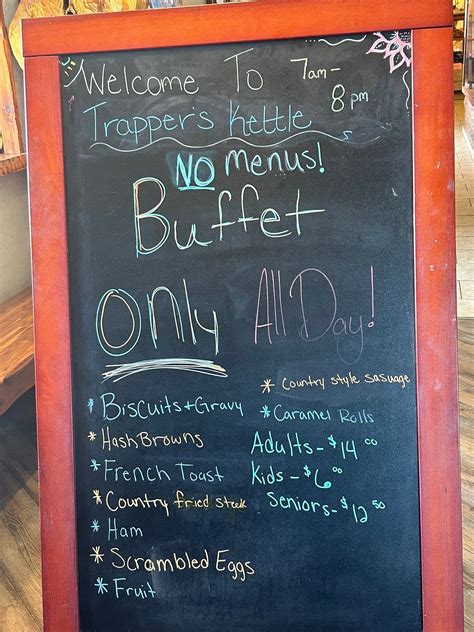 Welcome To 7am-
8 pm
Trapper's Kettle
NO Menus!
Buffet
Only All Day!
* Country style sasuage
* Biscuits + Gravy
* Caramel Rolls
* HashBrowns
Adults - $14 00
* French Toast
Kids - $6 00
* Country fried steak
Seniors - $12 50
* Ham
* Scrambled Eggs
* Fruit